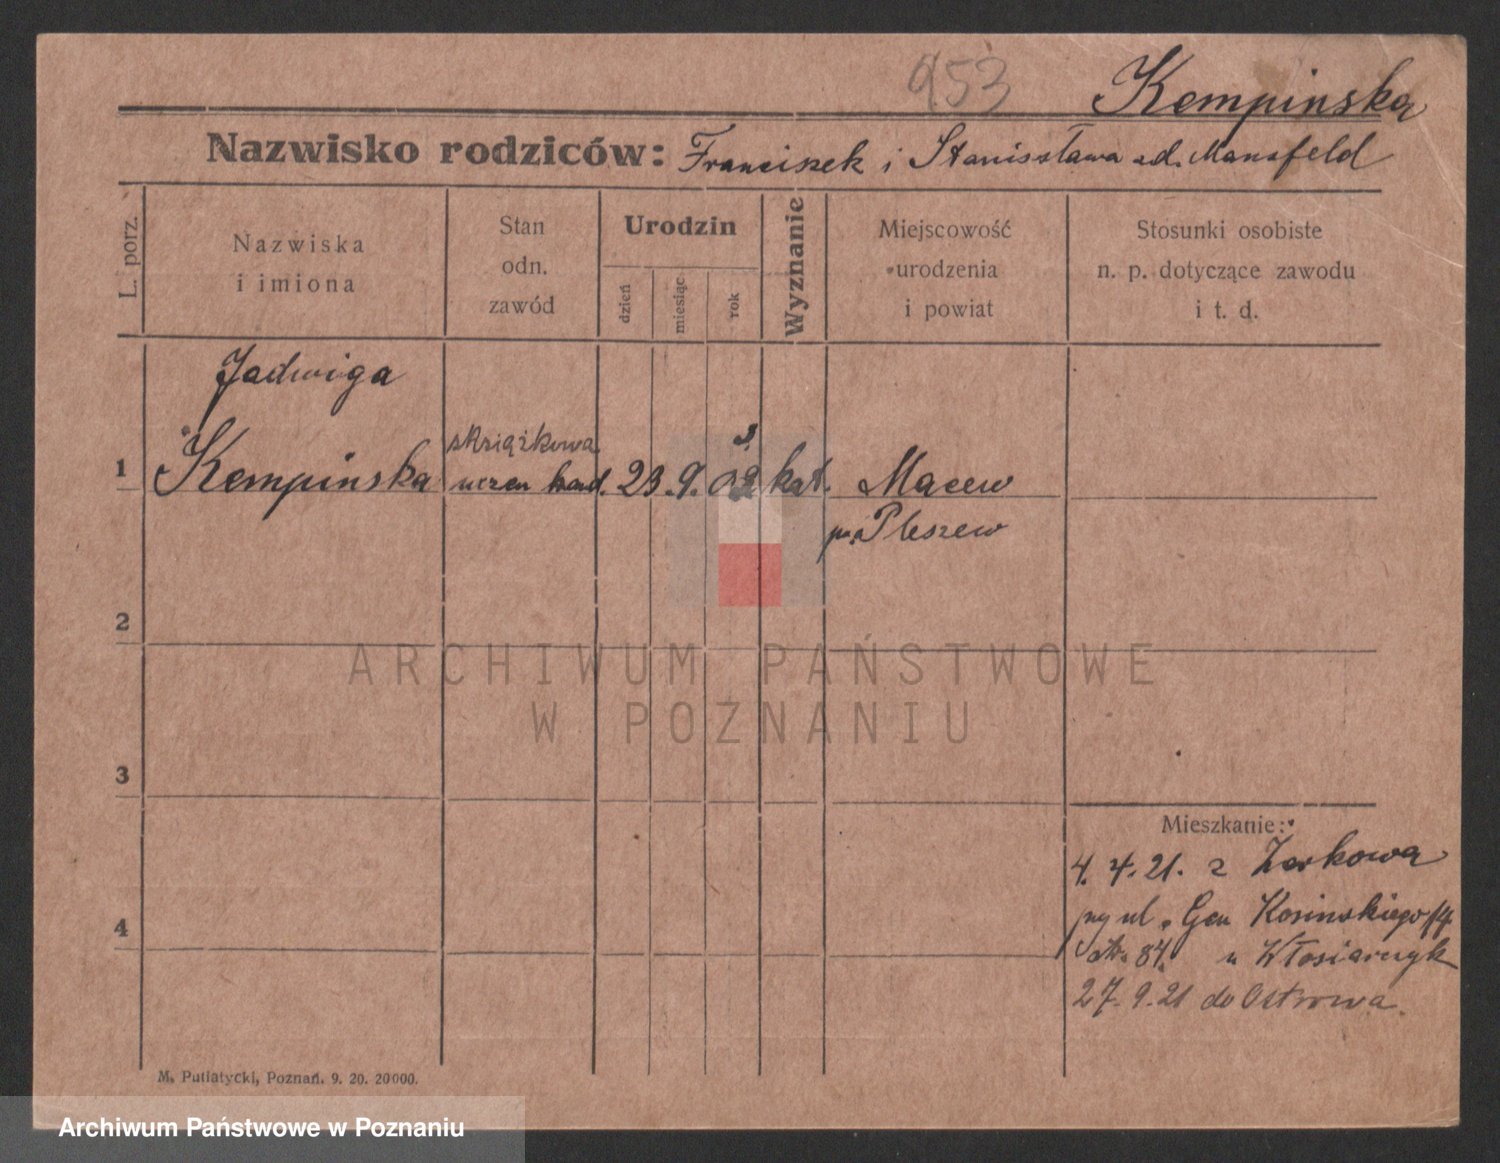 953
Kempinska
Nazwisko rodziców: Franciszek i Stanisława zd. Mansfeld
L. porz.
Nazwiska
i imiona
Stan
odn.
zawód
Urodzin
dzień
miesiąc
rok
Wyznanie
Miejscowość
urodzenia
i powiat
Stosunki osobiste
n. p. dotyczące zawodu
i t. d.
Jadwiga
1 Kempinska
książkowa
uczen hand. 23. 9. 02 kat. Macew
3
pow. Pleszew
2
3
4
Mieszkanie:
4. 4. 21. z Żerkowa
ul. Gen Kosinskiego
str. 84. u Włosiarczyk
27. 9. 21 do Ostrowa.
M. Putiatycki, Poznań. 9. 20. 20000.
ARCHIWUM PAŃSTWOWE
W POZNANIU
Archiwum Państwowe w Poznaniu